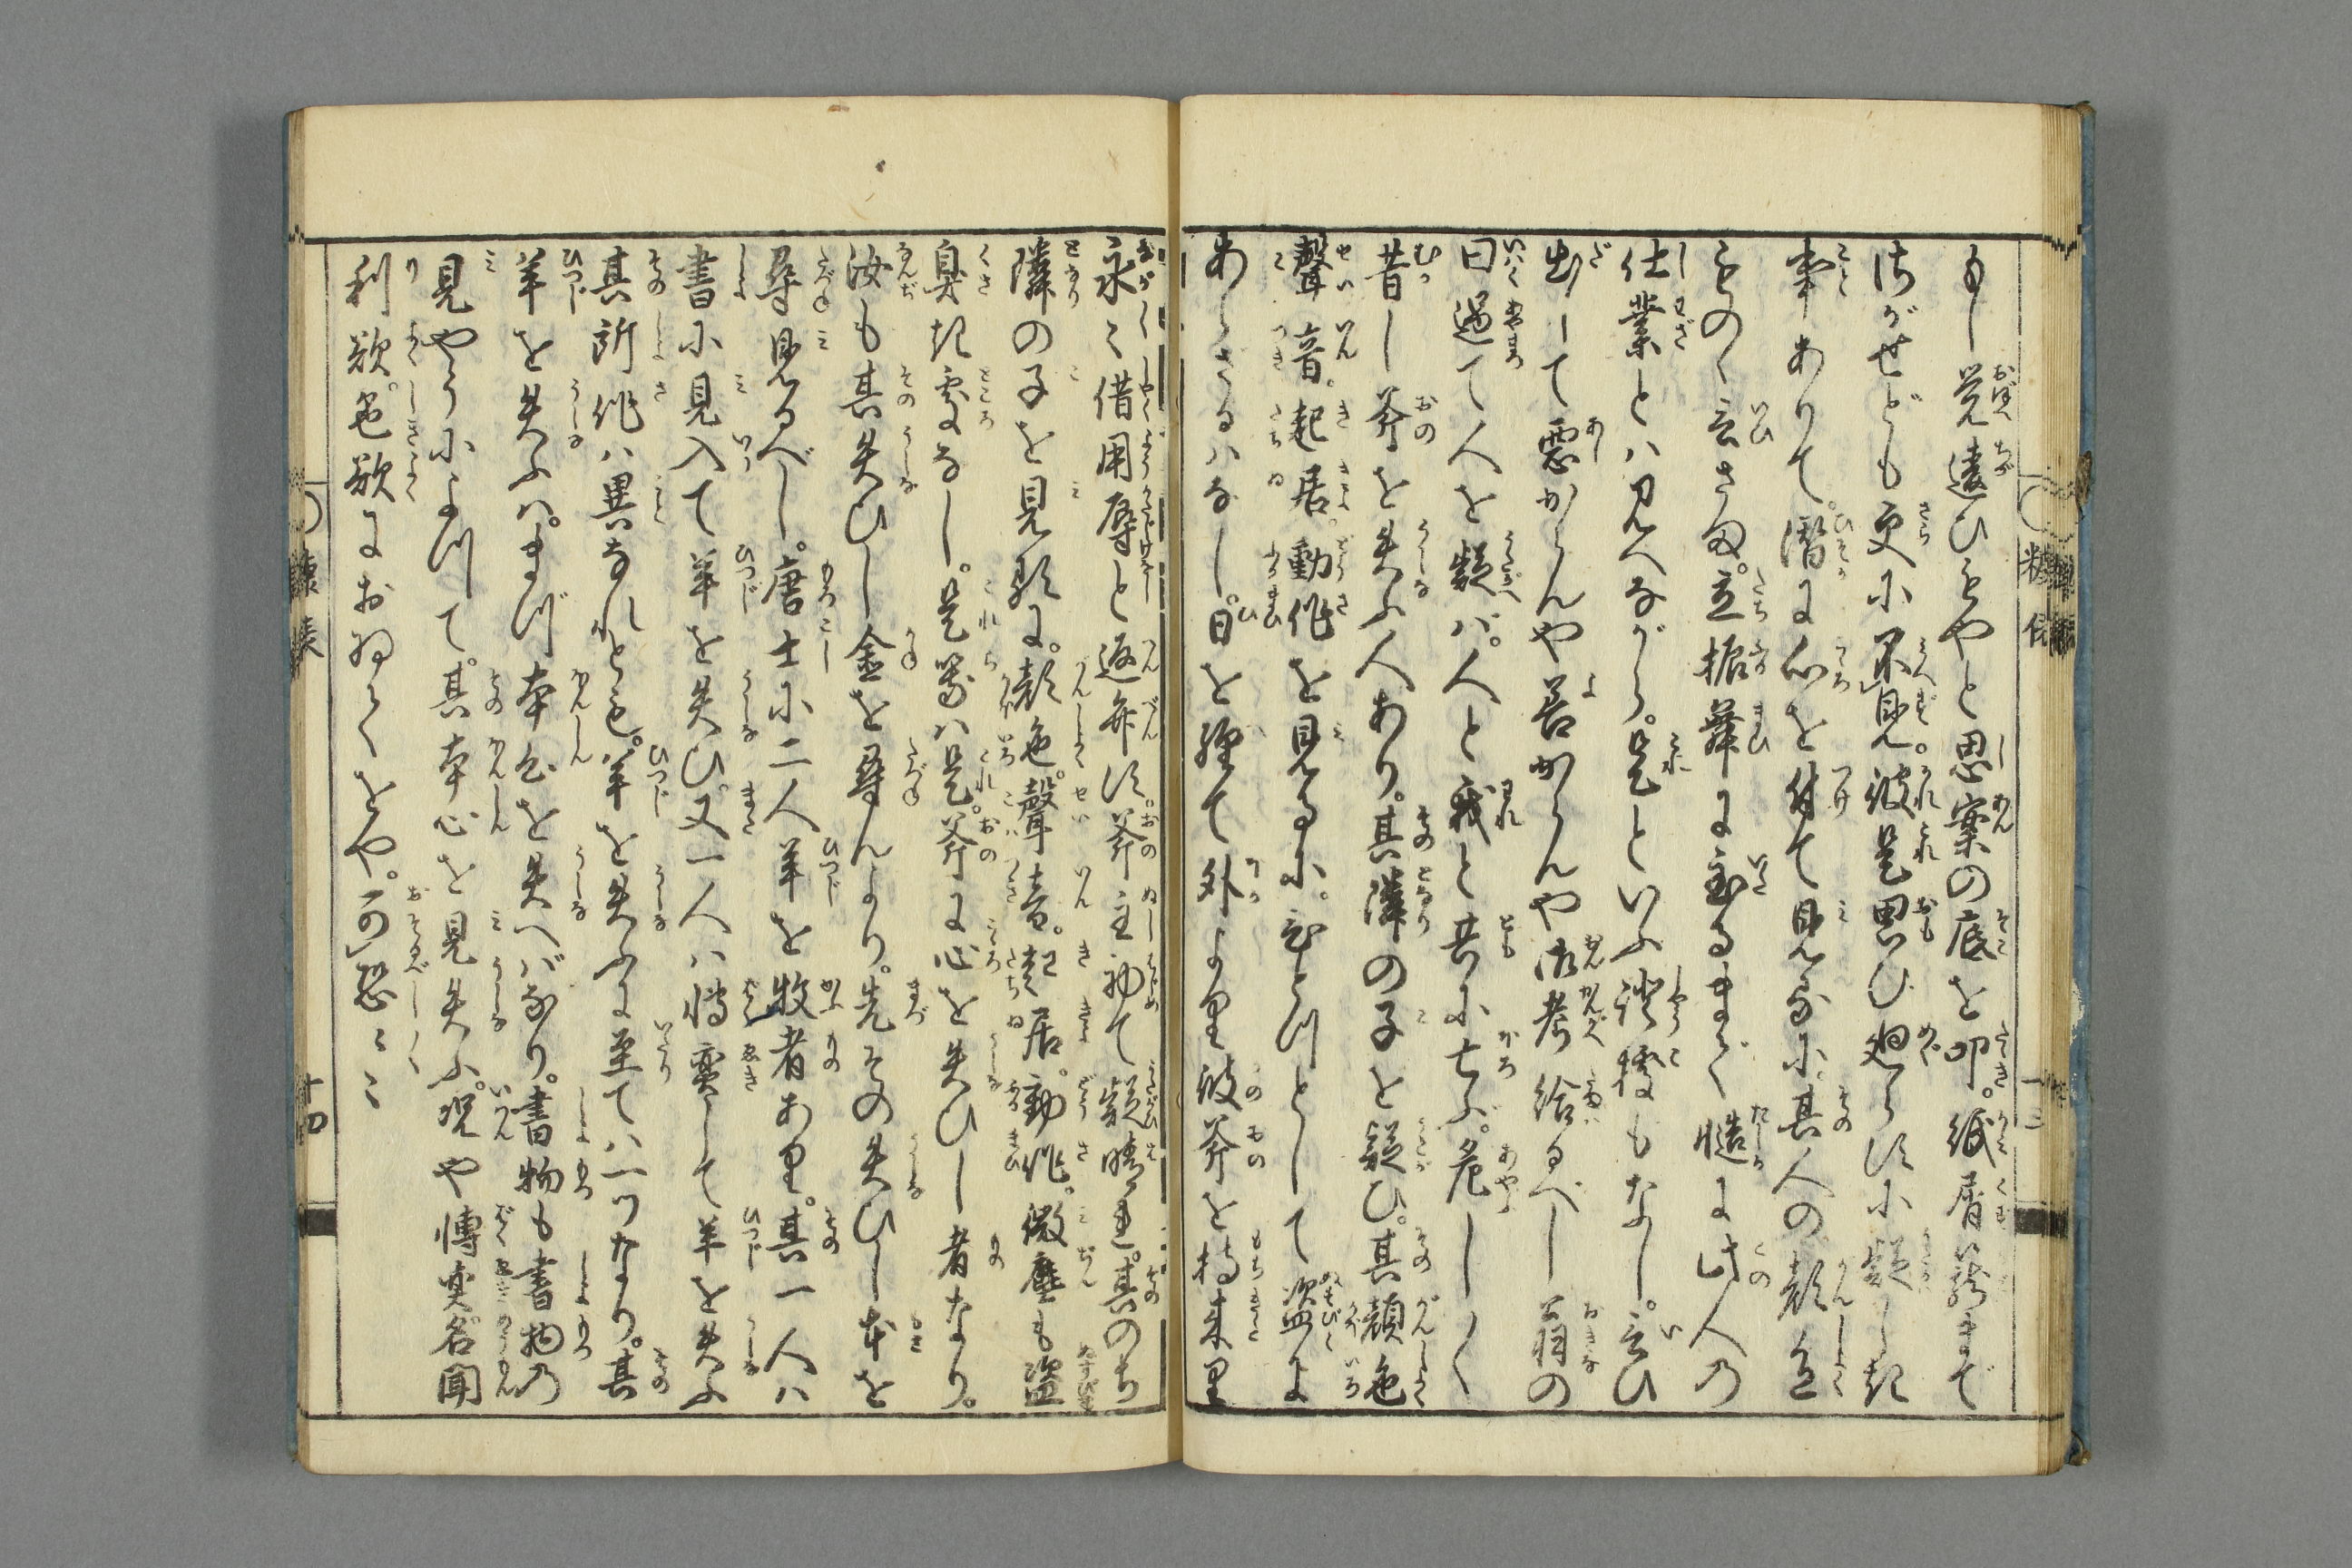 もし覚違ひもやと思案の底を叩。紙屑籠まで
さがせども更に不見。彼是思ひ廻らすに疑しき
事ありて。潜に心を付て見るに。其人の顔色
ものゝ言さま。立振舞に至るまで慥に此人の
仕業とハ見へながら。是といふ證拠もなし。言ひ
出して悪からんや善からんや御考給るべし翁の
曰過て人を疑バ。人と我と共に亡ぶ。危し〱
昔し斧を失ふ人あり。其隣の子を疑ひ。其顔色
聲音。起居。動作を見るに。ひとつとして盗に
あらざるハなし。日を経て外より彼斧を持来り
永〻借用辱と返弁す。斧主初て疑晴れ。其のち
隣の子を見るに。顔色。聲音。起居。動作。微塵も盗
臭き處なし。是等ハ是。斧に心を失ひし者なり。
汝も其失ひし金を尋んより。先その失ひし本を
尋見るべし。唐士に二人羊を牧者あり。其一人ハ
書に見入て羊を失ひ。又一人ハ博奕して羊を失ふ
其所作ハ異なれとも。羊を失ふに至てハ一ツなり。其
羊を失ふハ。まづ本心を失へバなり。書物も書物の
見やうによつて。其本心を見失ふ。况や博奕名聞
利欲。色欲におゐてをや。可恐〻〻
十四